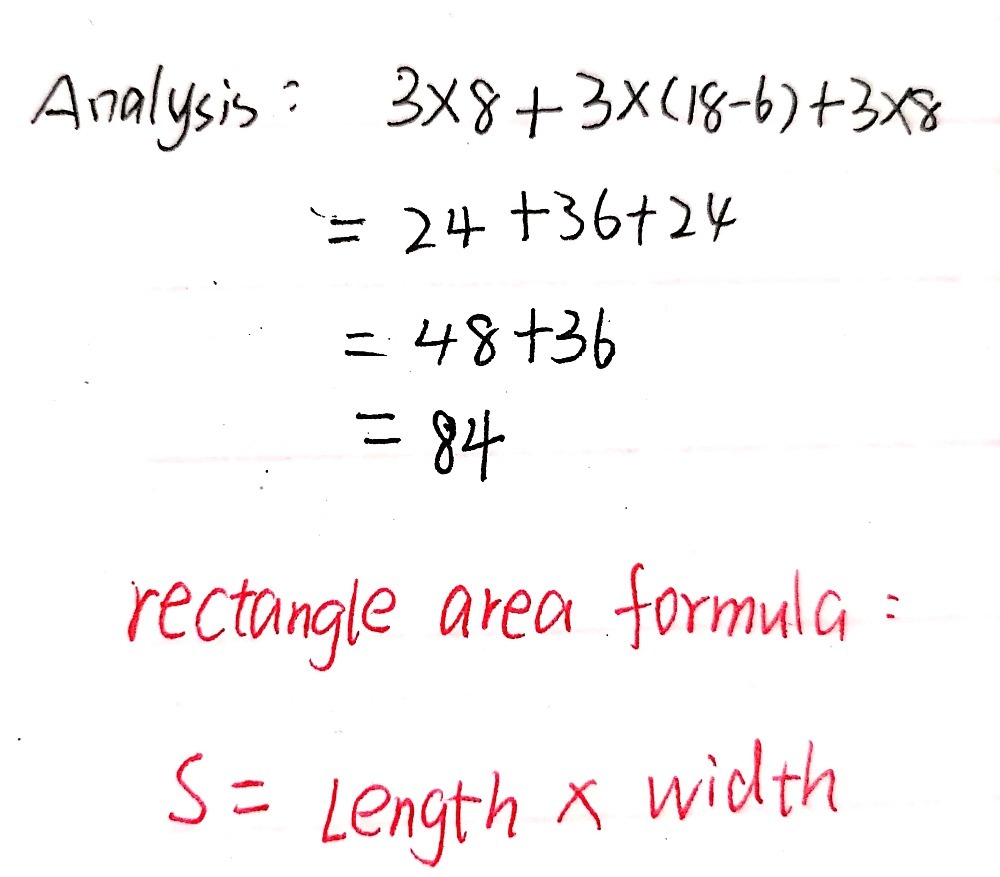 Analysis: 3×8+3×(18-6)+3×8
= 24+36+24
= 48+36
= 84
rectangle area formula:
S = Length × width